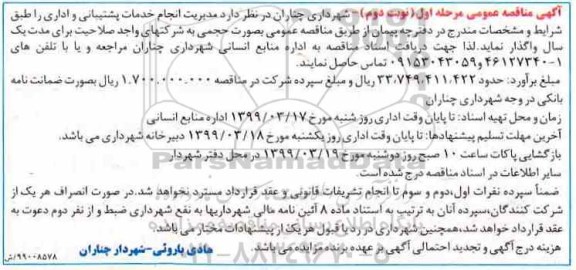 آگهی مناقصه عمومی مرحله اول (نوبت دوم) - شهرداری چناران در نظر دارد مدیریت انجام خدمات پشتیبانی و اداری را طبق
شرایط و مشخصات مندرج در دفترچه پیمان از طریق مناقصه عمومی بصورت حجمی به شرکتهای واجد صلاحیت برای مدت یک
سال واگذار نماید. لذا جهت دریافت اسناد مناقصه به اداره منابع انسانی شهرداری چناران مراجعه و یا با تلفن های
۱-۴۶۱۲۷۳۴۰ و ۰۹۱۵۳۰۴۳۰۵۹ تماس حاصل نمایند.
مبلغ برآورد: حدود ۳۳,۷۴۹,۴۱۱,۴۲۲ ریال و مبلغ سپرده شرکت در مناقصه ۱.۷۰۰.۰۰۰.۰۰۰ ریال بصورت ضمانت نامه
بانکی در وجه شهرداری چناران
زمان و محل تهیه اسناد: تا پایان وقت اداری روز شنبه مورخ ۱۳۹۹/۰۳/۱۷ اداره منابع انسانی
آخرین مهلت تسلیم پیشنهادها: تا پایان وقت اداری روز یکشنبه مورخ ۱۳۹۹/۰۳/۱۸ دبیرخانه شهرداری می باشد.
بازگشایی پاکات ساعت ۱۰ صبح روز دوشنبه مورخ ۱۳۹۹/۰۳/۱۹ در محل دفتر شهردار
سایر اطلاعات در اسناد مناقصه درج شده است.
ضمناً سپرده نفرات اول، دوم و سوم تا انجام تشریفات قانونی و عقد قرارداد مسترد نخواهد شد. در صورت انصراف هر یک از
شرکت کنندگان، سپرده آنان به ترتیب به استناد ماده ۸ آئین نامه مالی شهرداریها به نفع شهرداری ضبط و از نفر دوم دعوت به
عقد قرارداد خواهد شد، همچنین شهرداری در رد یا قبول هر یک از پیشنهادات مختار می باشد.
هزینه درج آگهی و تجدید احتمالی آگهی بر عهده برنده مزایده می باشد.
هادی پاروئی - شهردار چناران
۹۹۰۰۸۵۷۸/ش